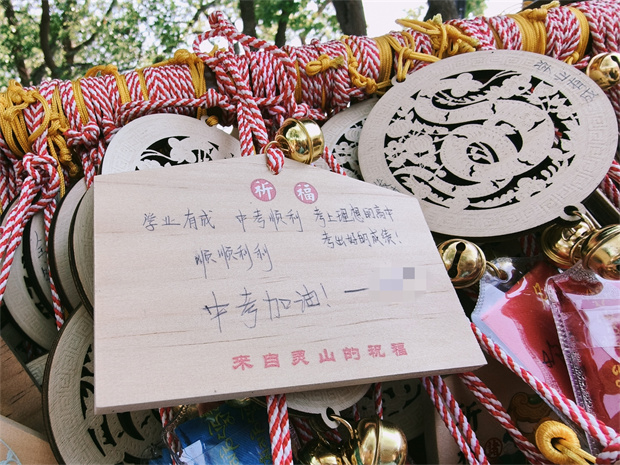 祈福
学业有成 中考顺利 考上理想的高中
考出好的成绩!
顺顺利利
中考加油! 一
来自灵山的祝福